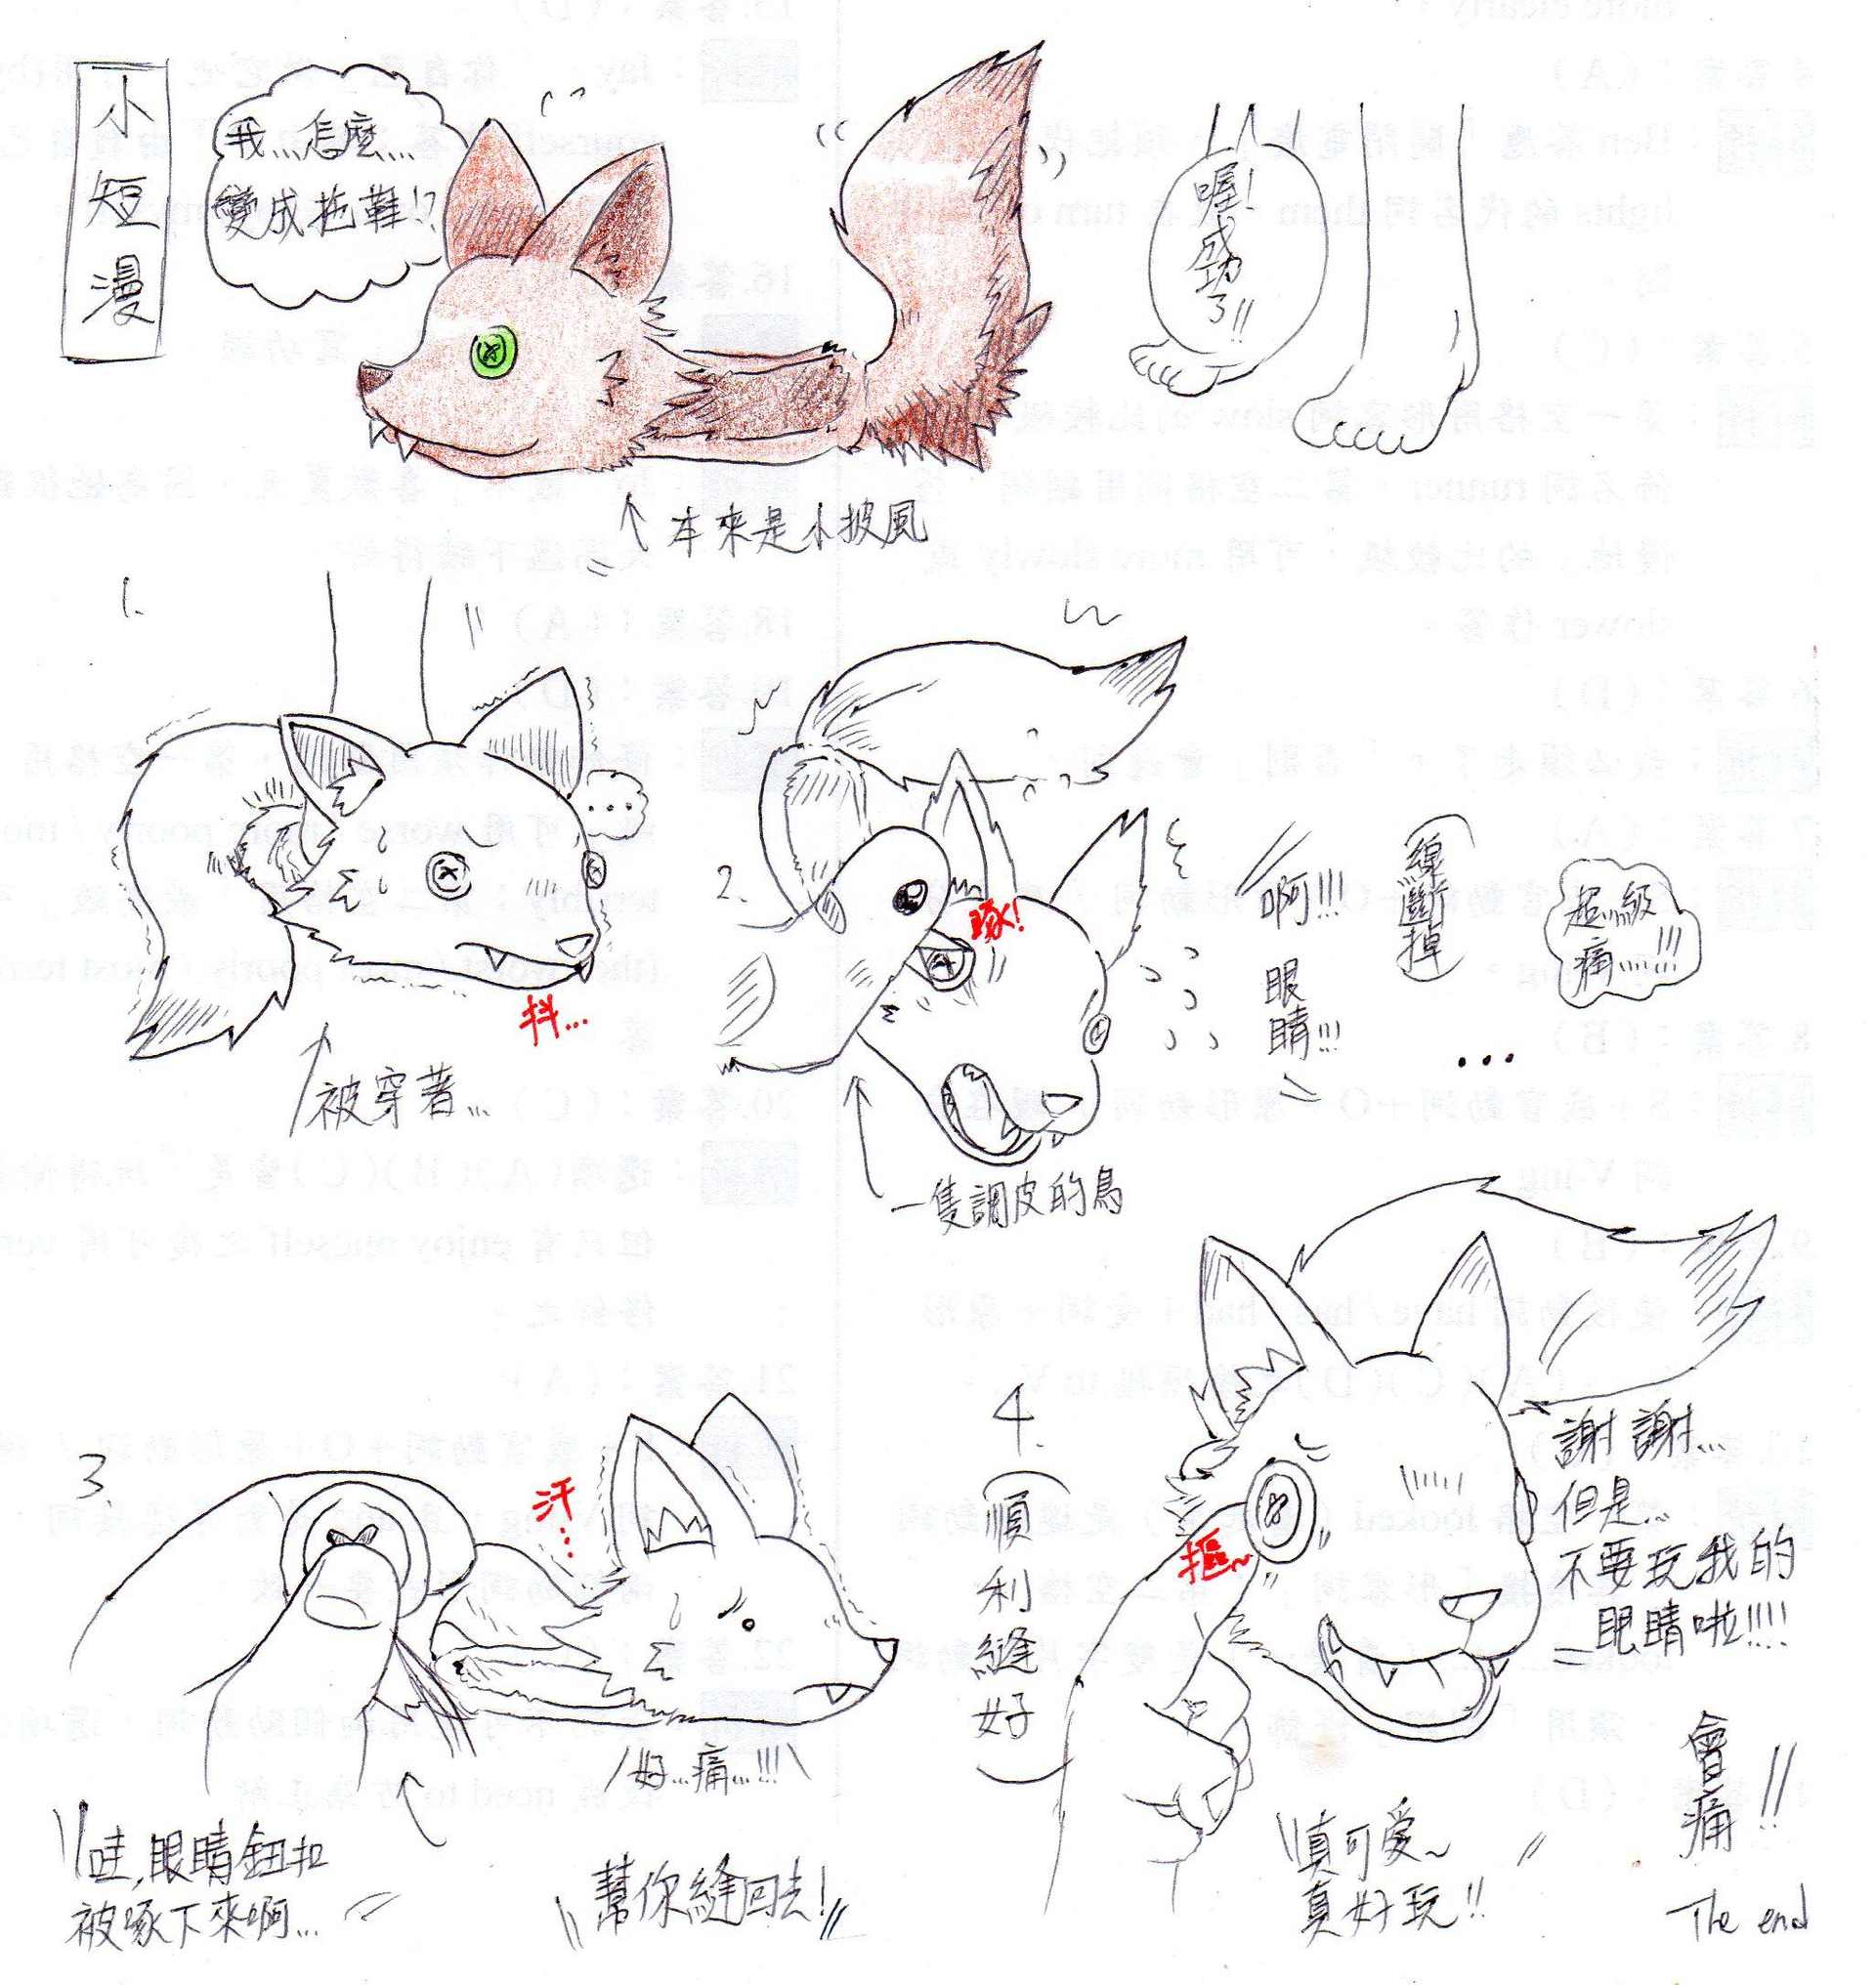 小短漫
我...怎麼...
變成拖鞋!?
喔!成功了!!
本來是小披風
1.
...
抖...
被穿著...
2.
啄!
啊!!!眼睛!!!
(線斷掉)
超級
痛...!!!
...
一隻調皮的鳥
3.
汗...
好...痛...!!!
哇,眼睛鈕扣
被啄下來啊...
幫你縫回去!
4.
(順利縫好)
摳~
謝謝...
但是...
不要玩我的
眼睛啦!!!!
會痛!!
真可愛~
真好玩!!
The end